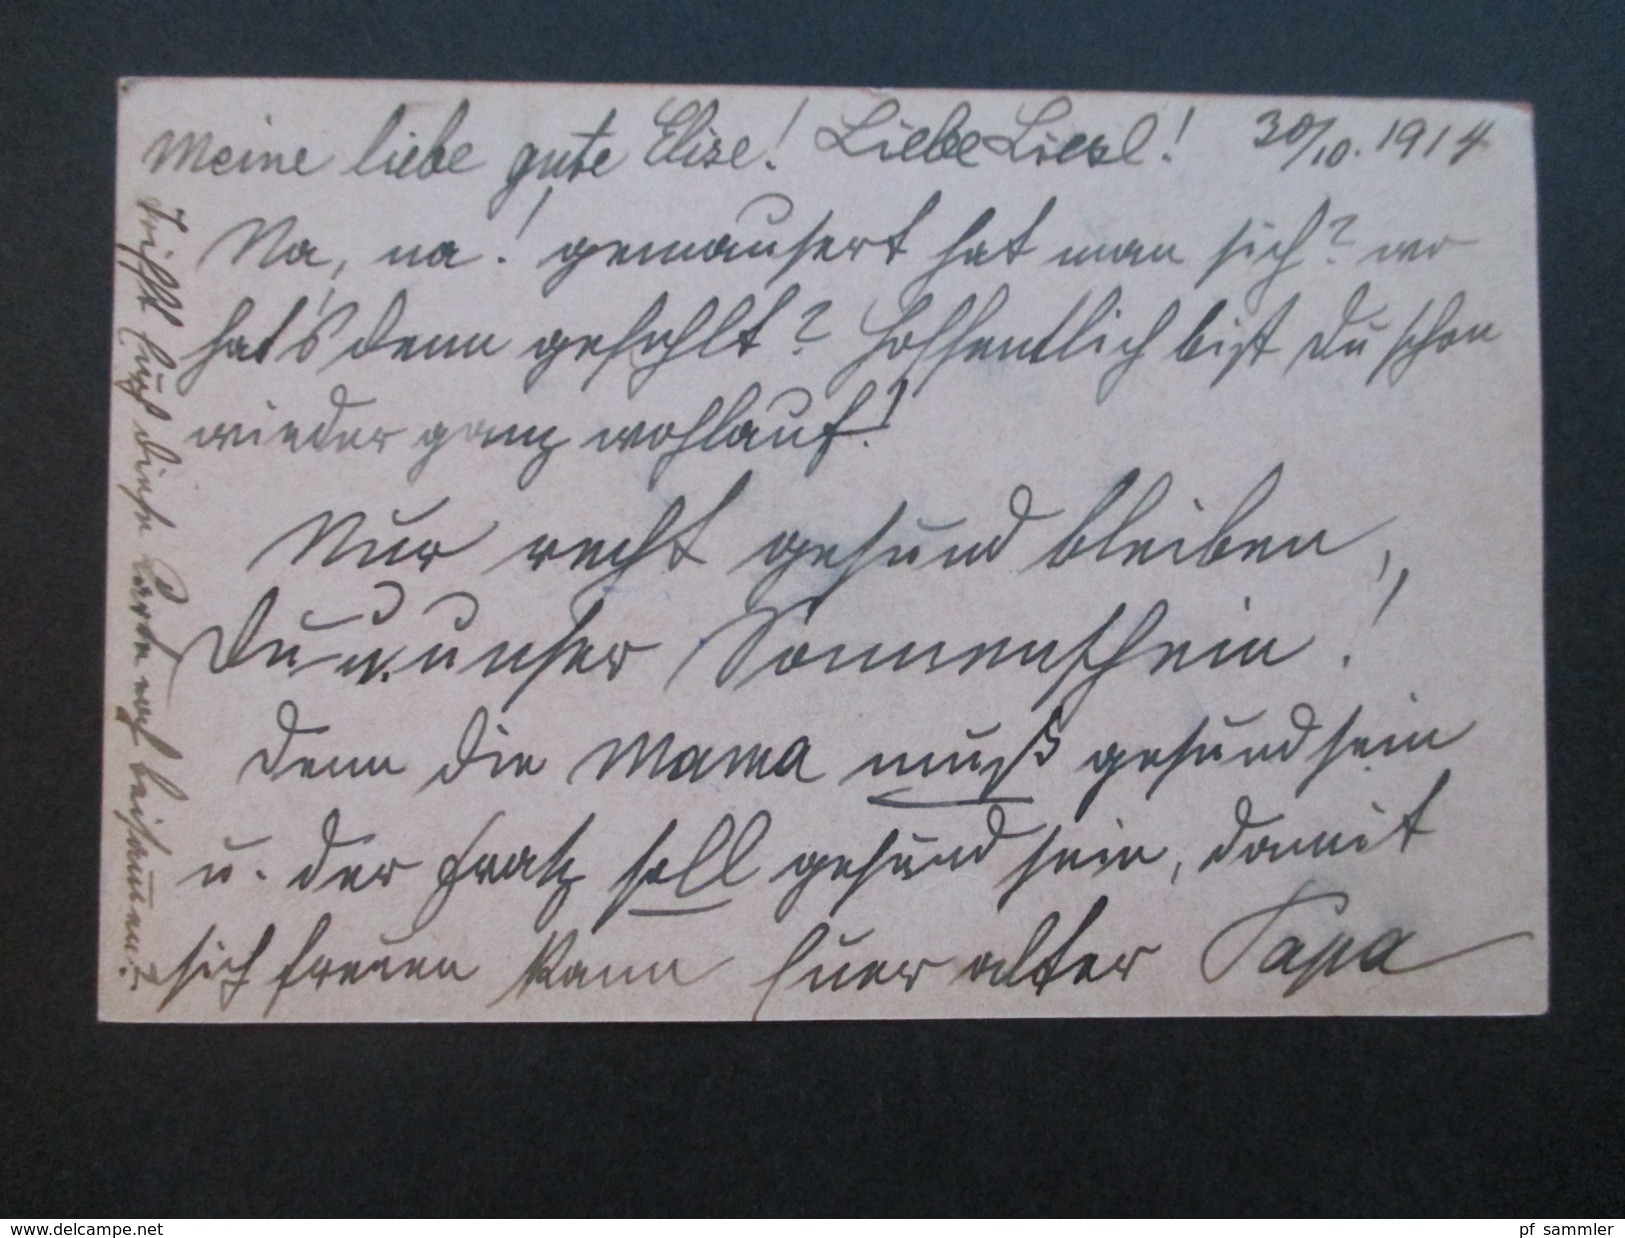 Meine liebe gute Elise! Liebe Liesl! 30/10. 1914
Na, na! gemausert hat man sich? wo
hat's denn gefehlt? Hoffentlich bist Du schon
wieder ganz wohlauf!
Nur recht gesund bleiben,
Du u. unser Sonnenschein!
Denn die Mama muß gesund sein
u. der Fratz soll gesund sein, damit
sich freuen kann Euer alter Papa
Trifft Euch diese Karte noch beisammen?
www.delcampe.net
pf_sammler